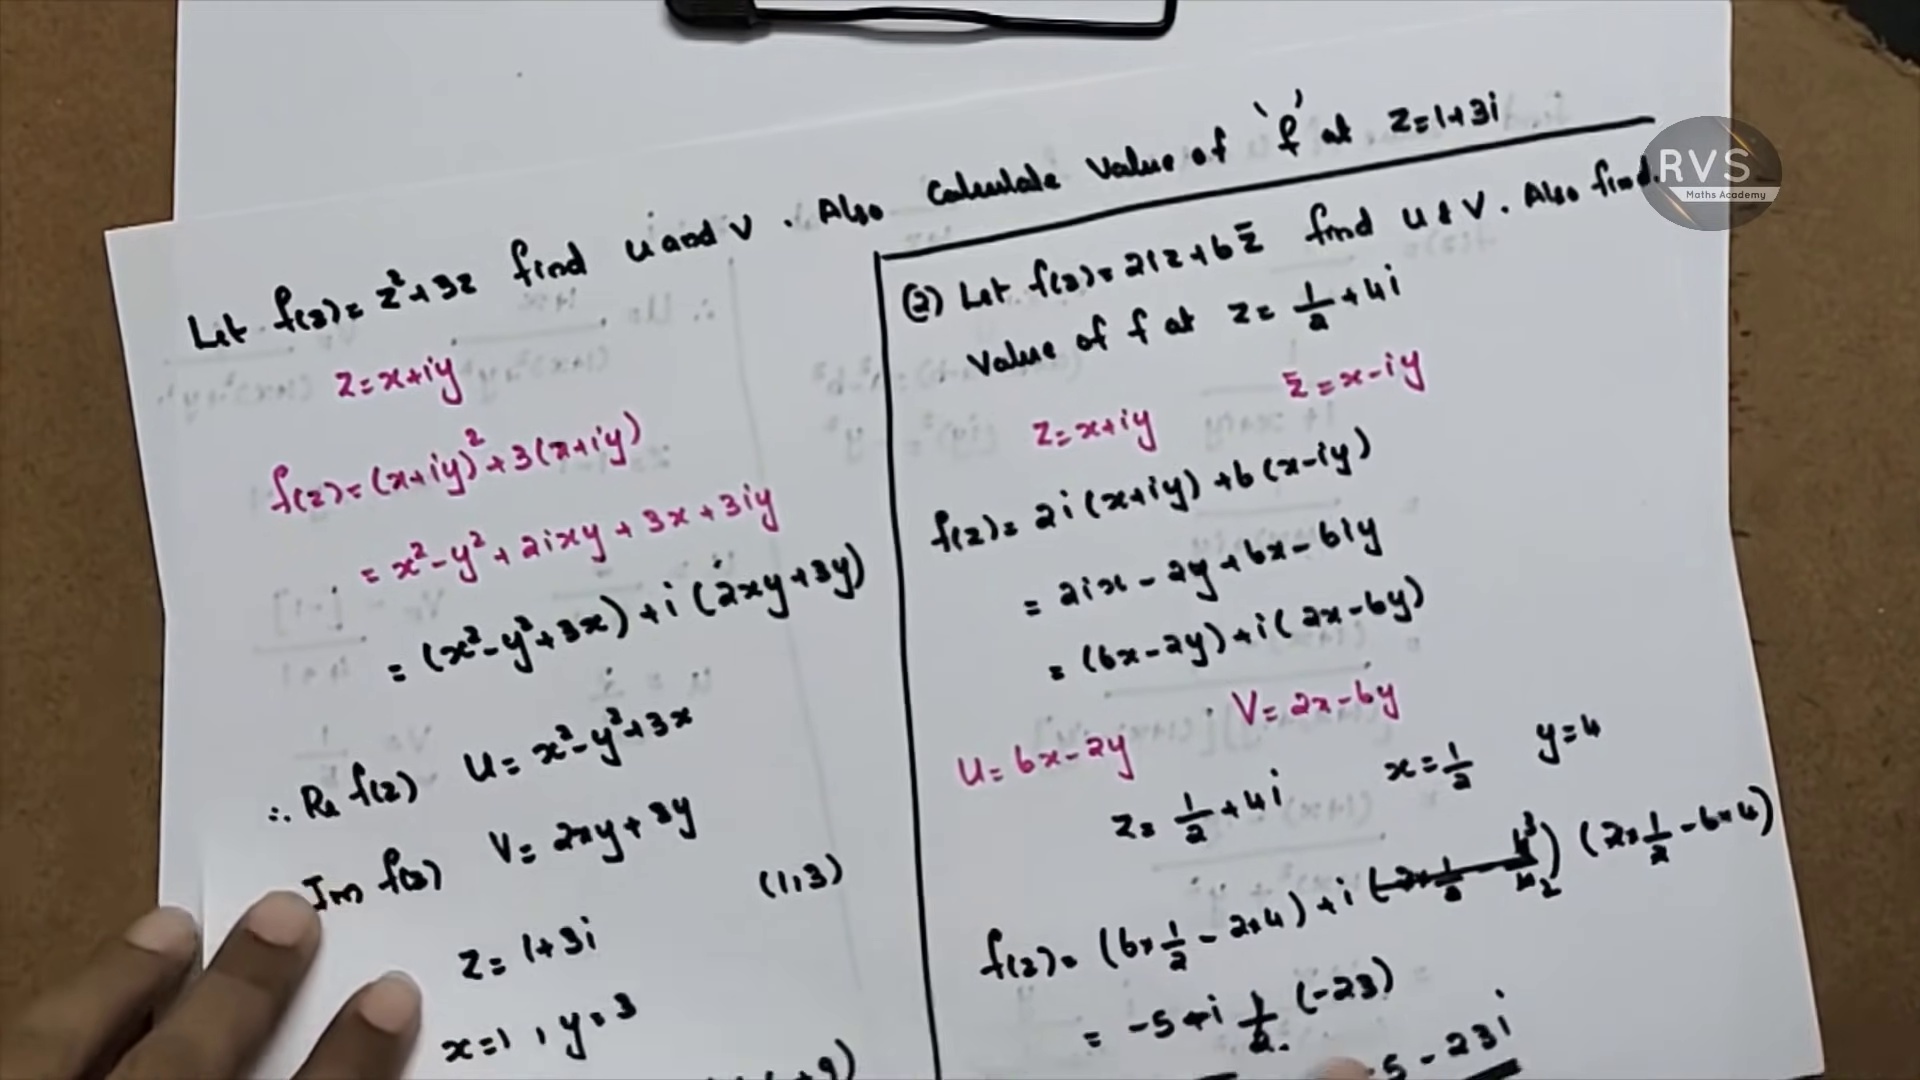 Let f(z) = z² + 3z find u and v. Also calculate value of 'f' at z = 1+3i
z = x+iy
f(z) = (x+iy)² + 3(x+iy)
= x² - y² + 2ixy + 3x + 3iy
= (x² - y² + 3x) + i (2xy + 3y)
∴ Re f(z) u = x² - y² + 3x
Im f(z) v = 2xy + 3y
(1,3)
z = 1+3i
x=1, y=3
+9)
(2) Let f(z) = 2iz + 6z̄ find u & v. Also find.
Value of f at z = 1/2 + 4i
z = x+iy z̄ = x-iy
f(z) = 2i (x+iy) + 6 (x-iy)
= 2ix - 2y + 6x - 6iy
= (6x - 2y) + i (2x - 6y)
u = 6x - 2y v = 2x - 6y
z = 1/2 + 4i x = 1/2 y = 4
f(z) = (6×1/2 - 2×4) + i (2×1/2 - 6×4)
= -5 + i (-23)
-5 - 23i
RVS
Maths Academy